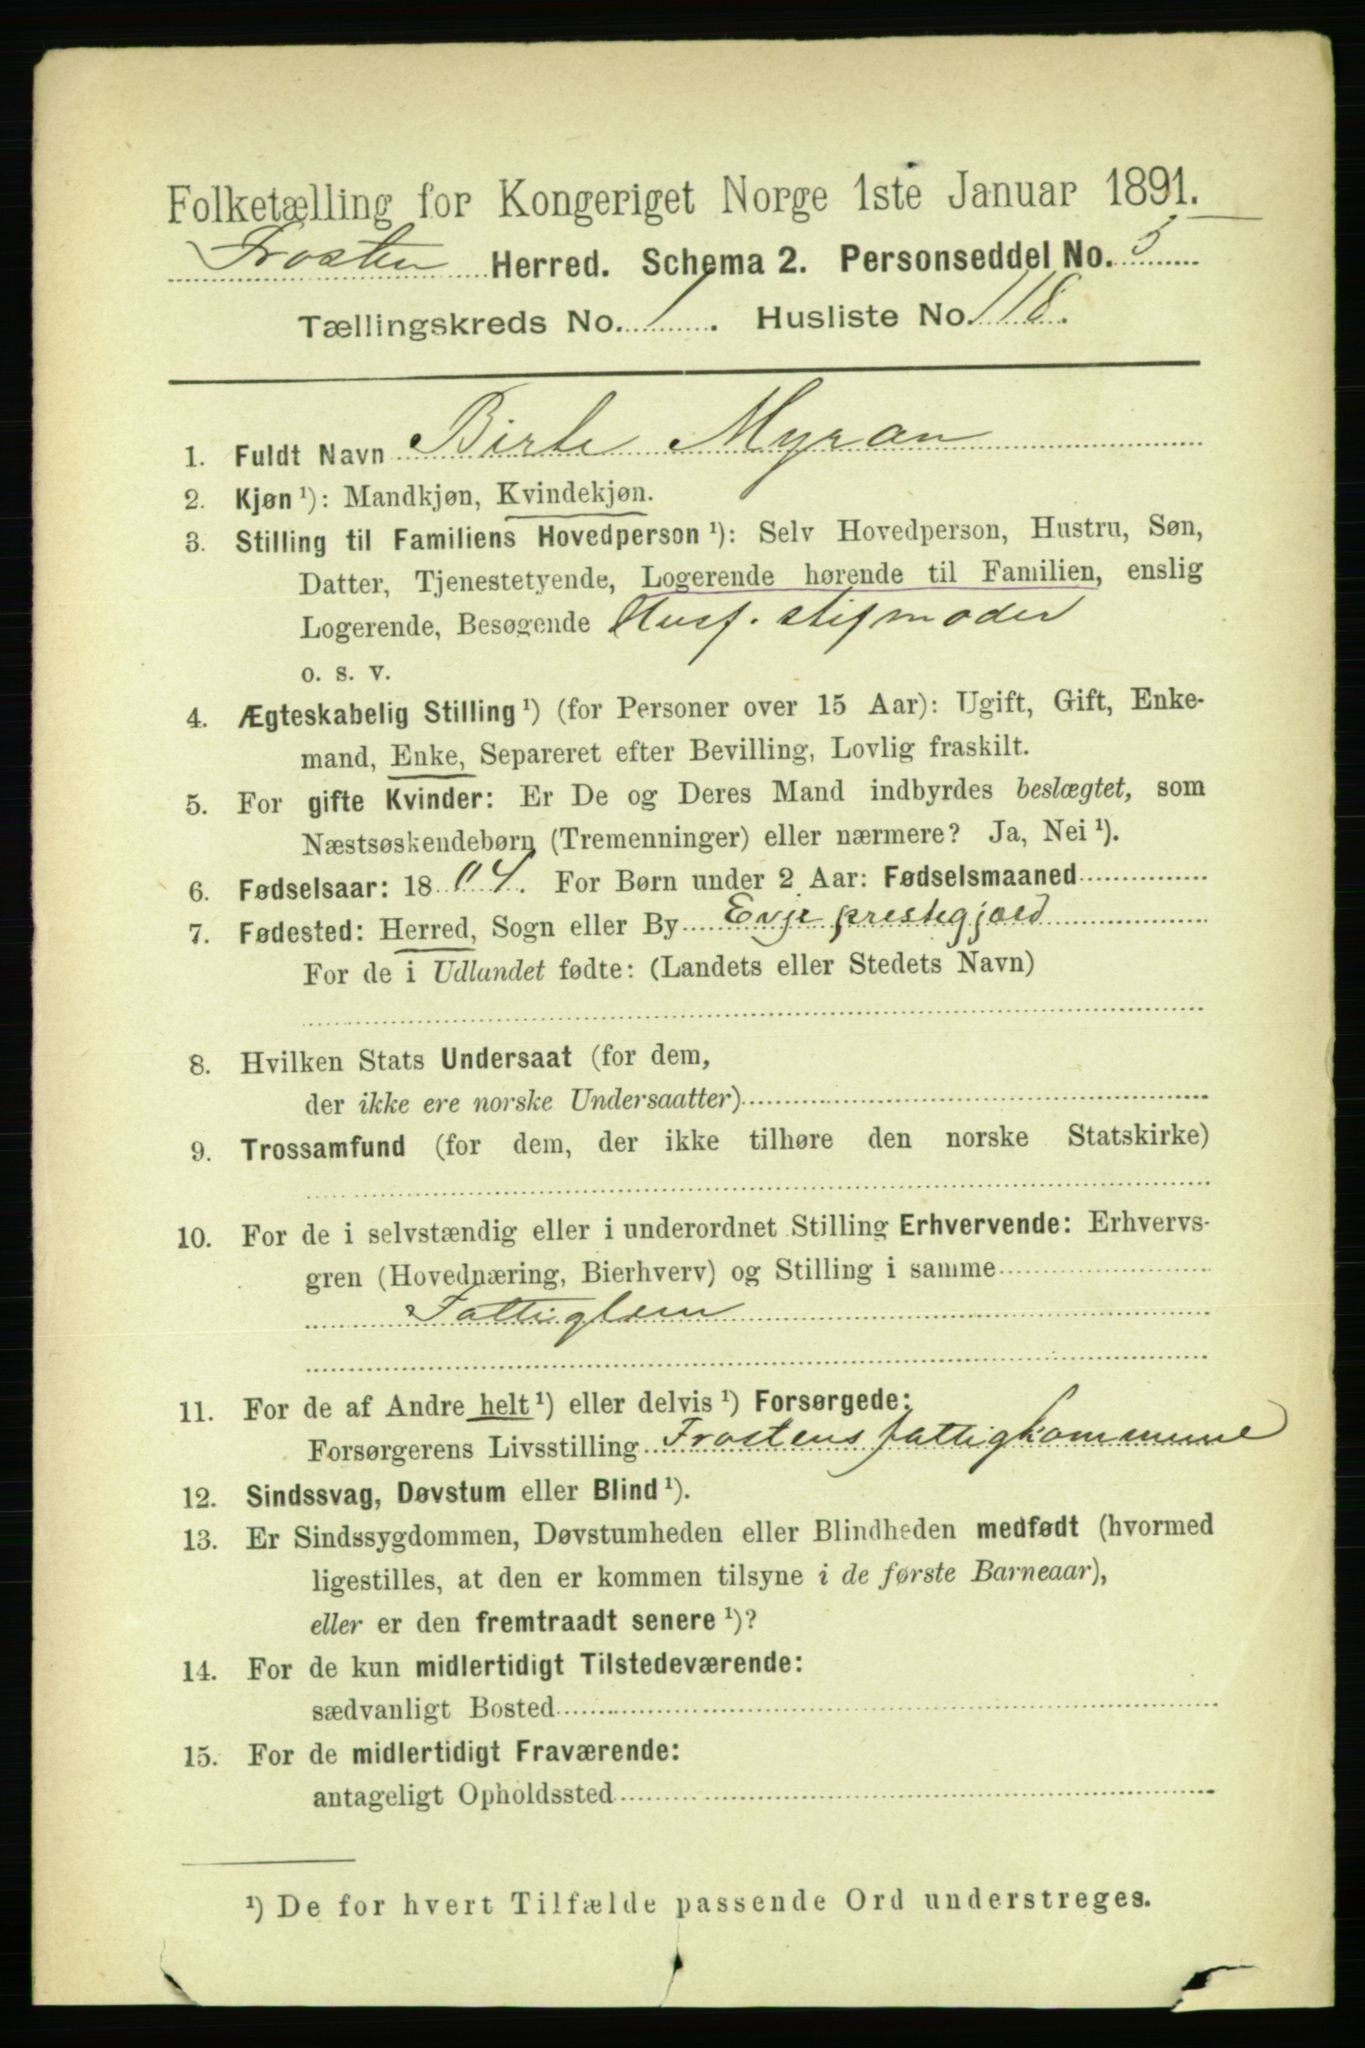 Folketælling for Kongeriget Norge 1ste Januar 1891.
Frosten Herred. Schema 2. Personseddel No. 5
Tællingskreds No. 1. Husliste No. 118.
1. Fuldt Navn Birte Myran
2. Kjøn ¹): Mandkjøn, Kvindekjøn.
3. Stilling til Familiens Hovedperson ¹): Selv Hovedperson, Hustru, Søn,
Datter, Tjenestetyende, Logerende hørende til Familien, enslig
Logerende, Besøgende Husf. stifmoder
o. s. v.
4. Ægteskabelig Stilling ¹) (for Personer over 15 Aar): Ugift, Gift, Enke-
mand, Enke, Separeret efter Bevilling, Lovlig fraskilt.
5. For gifte Kvinder: Er De og Deres Mand indbyrdes beslægtet, som
Næstsøskendebørn (Tremenninger) eller nærmere? Ja, Nei ¹).
6. Fødselsaar: 1804. For Børn under 2 Aar: Fødselsmaaned
7. Fødested: Herred, Sogn eller By Evje prestegjæld
For de i Udlandet fødte: (Landets eller Stedets Navn)
8. Hvilken Stats Undersaat (for dem,
der ikke ere norske Undersaatter)
9. Trossamfund (for dem, der ikke tilhøre den norske Statskirke)
10. For de i selvstændig eller i underordnet Stilling Erhvervende: Erhvervs-
gren (Hovednæring, Bierhverv) og Stilling i samme
Fattiglem
11. For de af Andre helt ¹) eller delvis ¹) Forsørgede:
Forsørgerens Livsstilling Frostens fattigkommune
12. Sindssvag, Døvstum eller Blind ¹).
13. Er Sindssygdommen, Døvstumheden eller Blindheden medfødt (hvormed
ligestilles, at den er kommen tilsyne i de første Barneaar),
eller er den fremtraadt senere ¹)?
14. For de kun midlertidigt Tilstedeværende:
sædvanligt Bosted
15. For de midlertidigt Fraværende:
antageligt Opholdssted
¹) De for hvert Tilfælde passende Ord understreges.